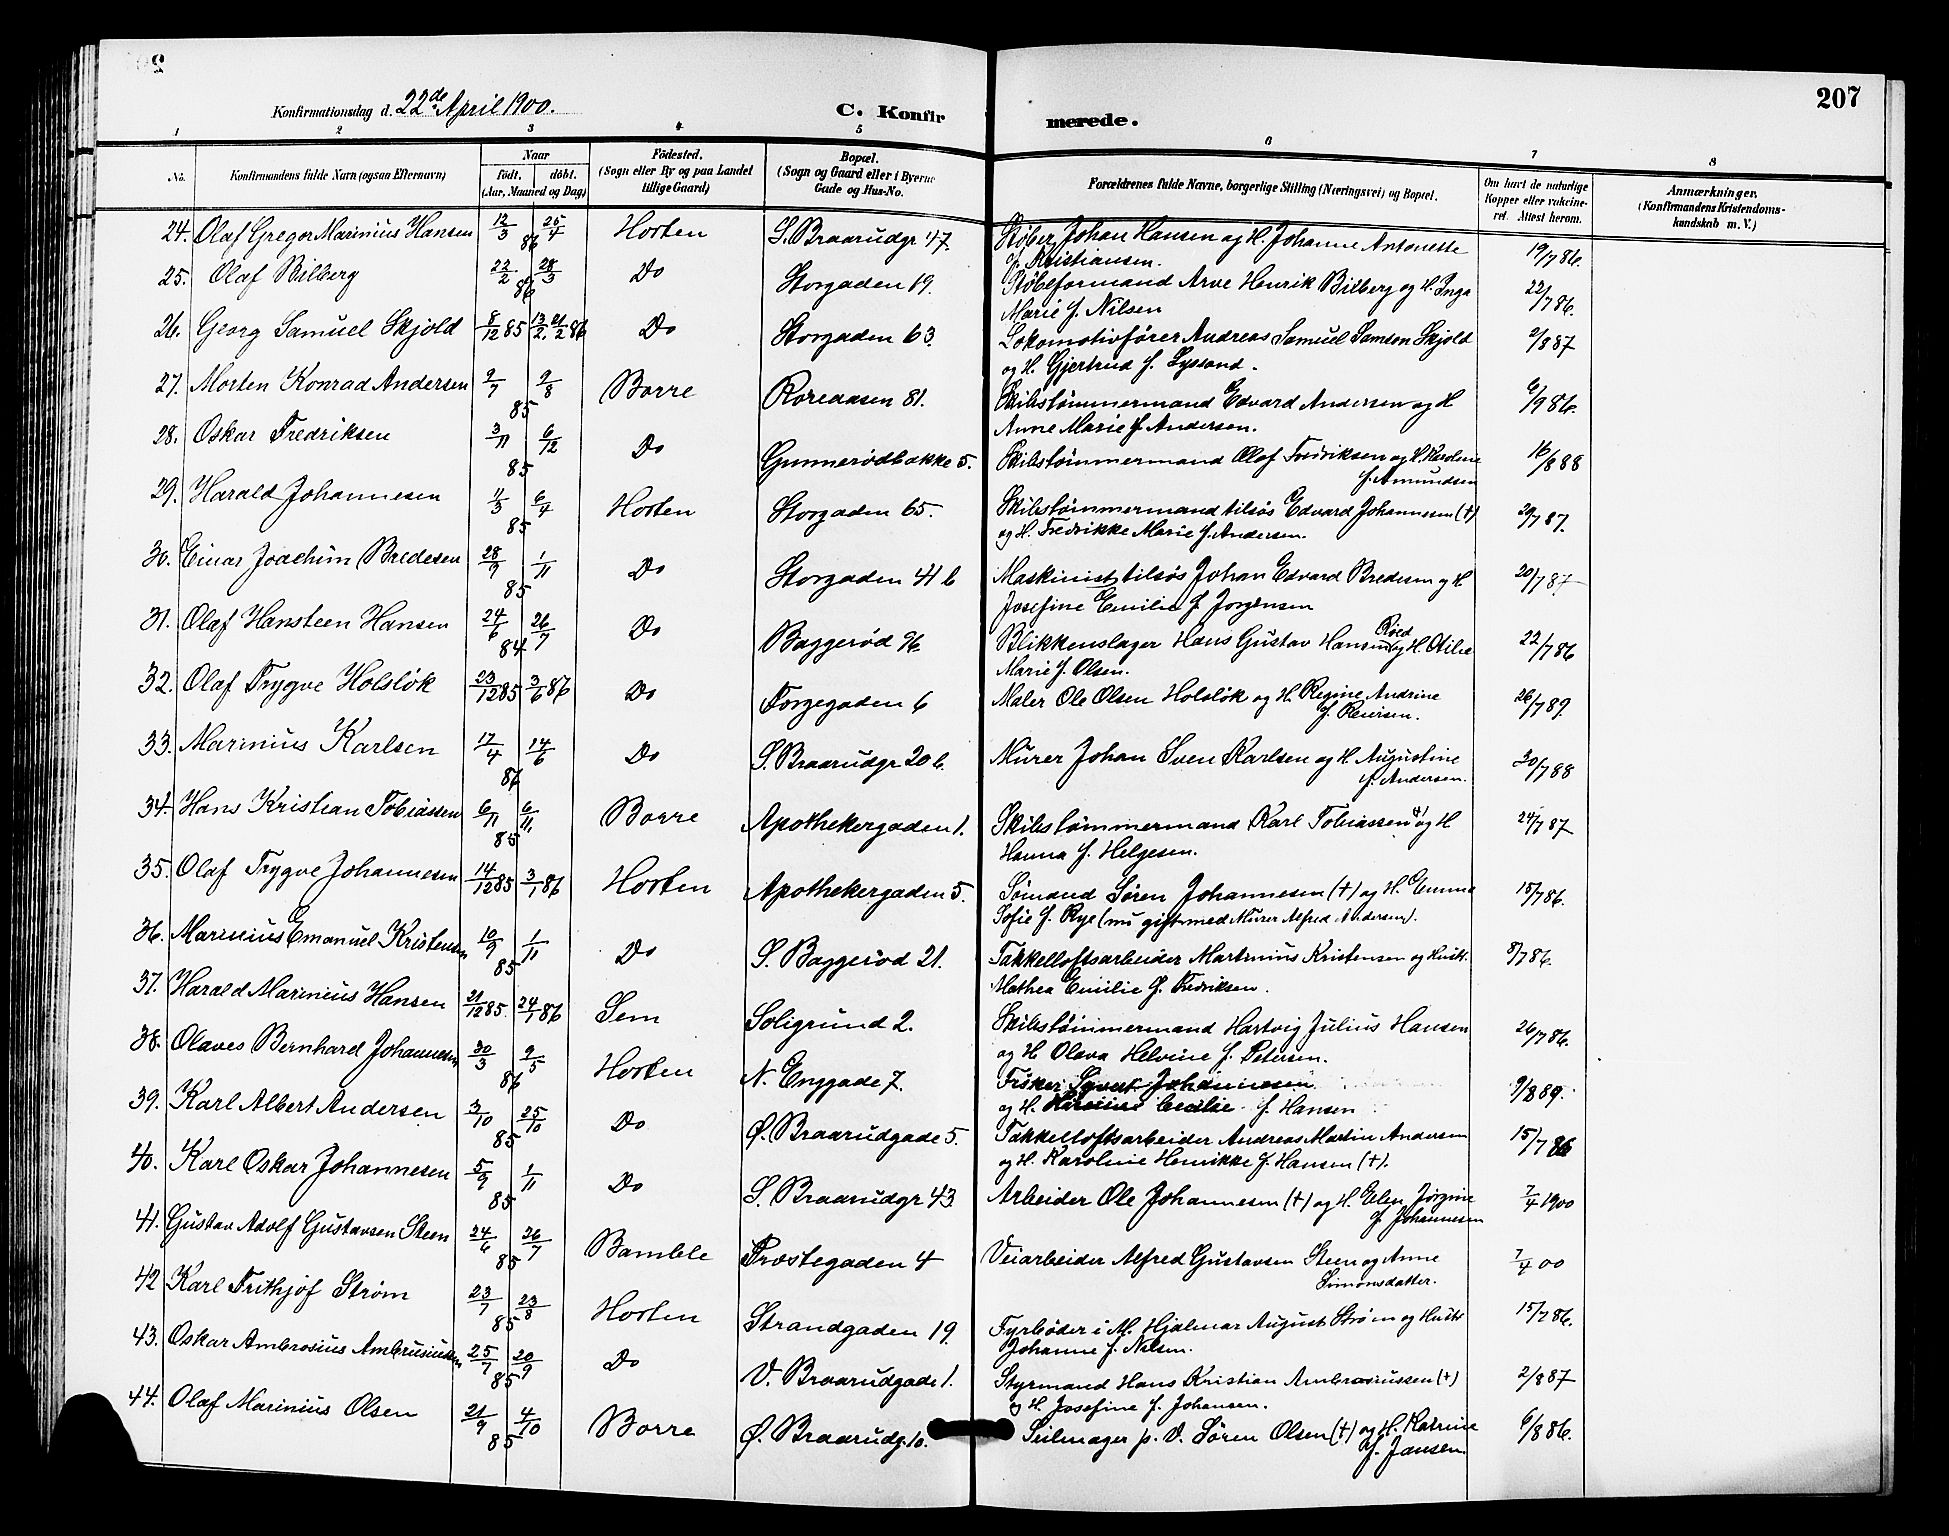 207
Konfirmationsdag d. 22de April 1900.
C. Konfirmerede.
1 2 3 4 5 6 7 8
No. Konfirmandens fulde Navn (ogsaa Efternavn) Naar født, døbt. (Aar, Maaned og Dag) Fødested. (Sogn eller By og paa Landet tillige Gaard) Bopæl. (Sogn og Gaard eller i Byerne Gade og Hus-No. Forældrenes fulde Navne, borgerlige Stilling (Næringsvei) og Bopæl. Om havt de naturlige Kopper eller vaccineret. Attest herom. Anmærkninger. (Konfirmandens Kristendomskundskab m. V.)
24. Olaf Gregor Marinius Hansen 12/3 25/4 86 Horten S. Braarudgr 47. Støber Johan Hansen og H. Johanne Antonette f. Kristiansen. 19/7 86.
25. Olaf Bilberg 22/2 28/3 86 Do Storgaden 19. Støbeformand Arve Henrik Bilberg og H. Inga Marie f. Nilsen 22/7 86.
26. Georg Samuel Skjold 8/12 85 13/2. 21/2 86 Do Storgaden 63. Lokomotivfører Andreas Samuel Samson Skjold og H. Gjertrud f. Lyssand. 2/8 87
27. Morten Konrad Andersen 9/7 9/8 85 Borre Roreaasen 81. Skibstømmermand Edvard Andersen og H Anne Marie f. Andersen. 6/9 86.
28. Oskar Fredriksen 3/11 6/12 85 Do Gunnerødbakke 5. Skibstømmermand Olaf Fredriksen og H. Karoline f. Amundsen 16/8 88
29. Harald Johannesen 11/3 6/4 85 Horten Storgaden 65. Skibstømmermand tilsøs Edvard Johannesen (+) og H. Fredrikke Marie f. Andersen. 29/7 87.
30. Einar Joachim Bredesen 28/9 1/11 85 Do Storgaden 41 b Maskinist tilsøs Johan Edvard Bredesen og H Josefine Emilie f. Jørgensen 20/7 87
31. Olaf Hansteen Hansen 24/6 26/7 84 Do Baggerød 96 Blikkenslager Hans Gustav Hansen Røed og H. Otilie Marie f. Olsen. 22/7 86
32. Olaf Trygve Holsløk 23/12 85 3/6 86 Do Torgegaden 6 Maler Ole Olsen Holsløk og H. Regine Andrine f. 26/7 89.
33. Marinius Karlsen 17/4 14/6 86 Do S. Braarudgr 20 b. Murer Johan Sven Karlsen og H. Augustine f. Andersen. 30/7 88
34. Hans Kristian Tobiassen 6/11 6/11. 85 Borre Apothekergaden 1. Skibstømmermand Karl Tobiassen (+) og H Hanna f. Helgesen. 24/7 87
35. Olaf Trygve Johannesen 14/12 85 3/1 86 Horten Apothekergaden 5. Sømand Søren Johannesen (+) og H. Emma Sofie f. Rye (nu gift med Murer Alfred Andersen). 15/7 86.
36. Marinius Emanuel Kristensen 10/9 1/11 85 Do S. Baggerød 21. Takkelloftsarbeider Martinius Kristensen og Hustr. Mathea Emilie f. Fredriksen. 8/7 86.
37. Harald Marinius Hansen 21/12 85. 24/1 86 Sem Soligrund 2. Skibstømmermand Hartvig Julius Hansen og H Olava Helvine f. Petersen. 26/7 86.
38. Olaves Bernhard Johannesen 30/3 9/5 86 Horten N. Enggade 7. Fisker Syvert Johannesen og H. Cecilie f. Hansen 9/8 89.
39. Karl Albert Andersen 3/10 25/10 85 Do Ø. Braarudgade 5. Takkelloftsarbeider Andreas Martin Andersen og H. Karoline Henrikke f. Hansen (+). 15/7 86
40. Karl Oskar Johannesen 5/9 1/11 85 Do S. Braarudgr 43 Arbeider Ole Johannesen (+) og H. Elen Jørgine f. Johannesen 7/4 1900
41. Gustav Adolf Gustavsen Steen 24/6 26/7 85 Bamble Præstegaden 4 Veiarbeider Alfred Gustavsen Steen og Anne Simonsdatter. 7/4 00
42 Karl Frithjof Strøm 23/7 23/8 85 Horten Strandgaden 19. Fyrbøder i M. Hjalmar August Strøm og Hustr Johanne f. Nilsen. 15/7 86.
43. Oskar Ambrosius Ambrusiussen 25/7 20/9 85 Do V. Braarudgade 1. Styrmand Hans Kristian Ambrosiussen (+) og H. Josefine f. Johansen. 2/8 87
44. Olaf Marinius Olsen 21/9 4/10 85 Borre Ø. Braarudg. 10. Seilmager p. V. Søren Olsen (+) og H. Katrine f. Jansen. 6/8 86.